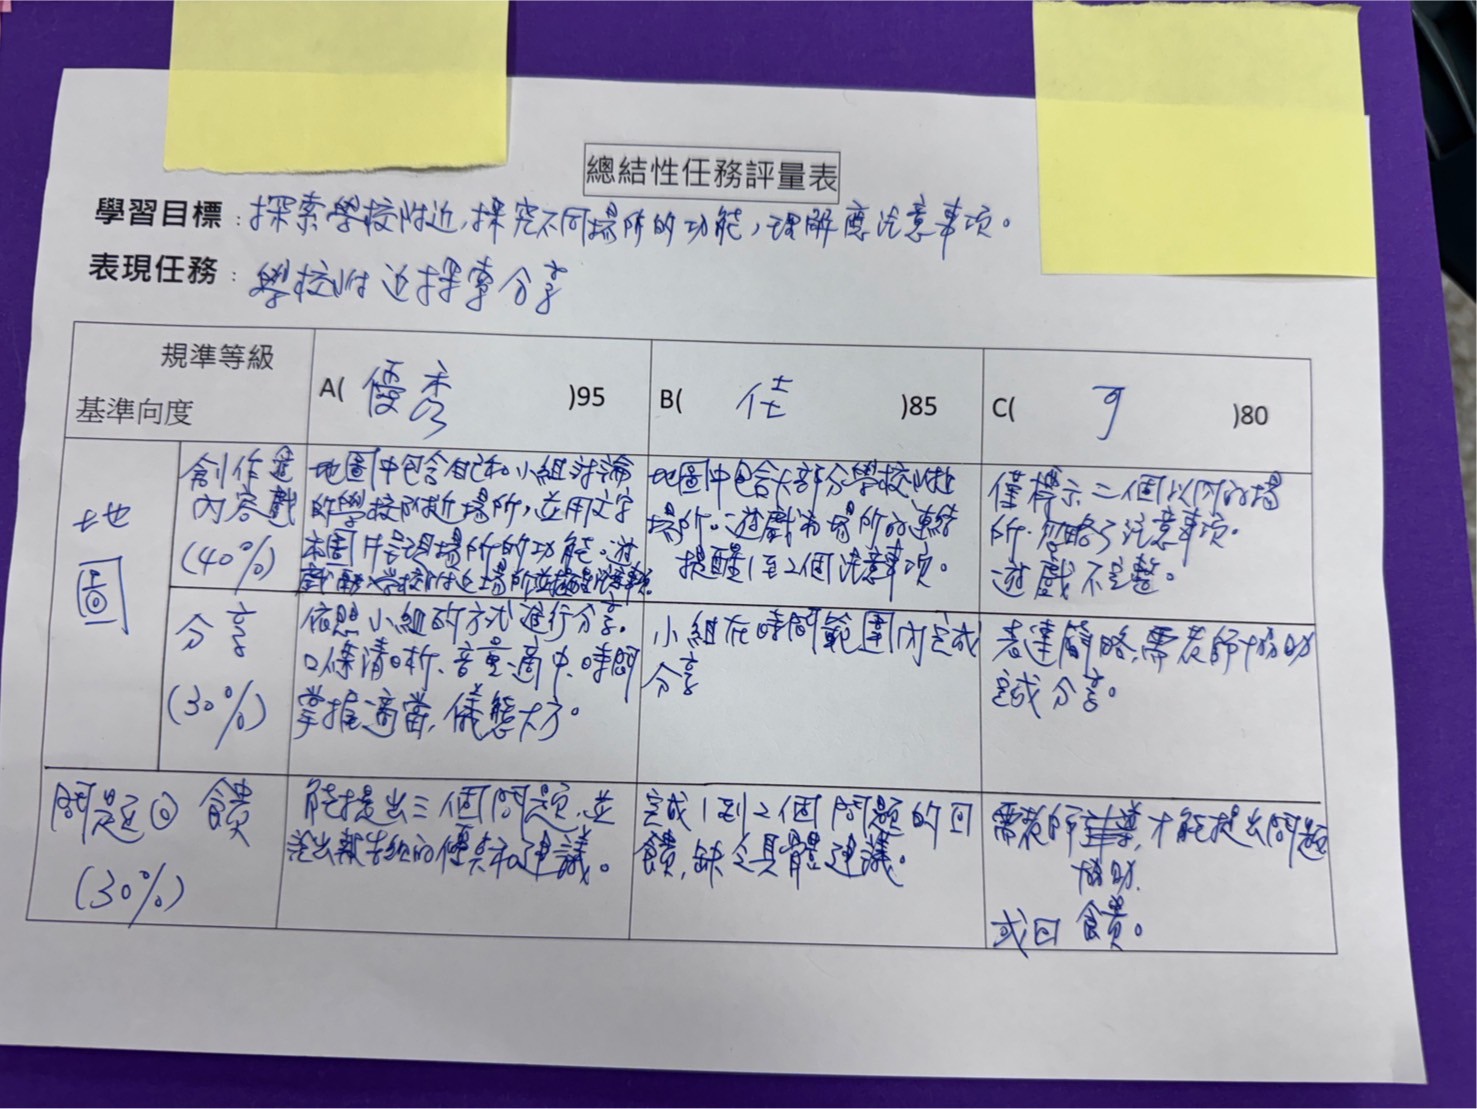 總結性任務評量表
學習目標：探索學校附近，探究不同場所的功能，理解應注意事項。
表現任務：學校附近探索分享
規準等級
基準向度
A( 優秀 )95
B( 佳 )85
C( 可 )80
地圖
創作遊
內容戲
(40%)
地圖中包含自己和小組討論
的學校附近場所，並用文字
本圖片呈現場所的功能。遊
學校附近場所並提醒注意事項。
地圖中包含大部分學校附近
場所。遊戲有場所的連結
提醒1至2個注意事項。
僅標示二個以內的場
所。忽略了注意事項。
遊戲不完整。
分享
(30%)
依照小組的方式進行分享。
口條清晰、音量適中、時間
掌握適當，儀態大方。
小組在時間範圍內完成
分享
表達簡略，需老師協助
完成分享。
問題回饋
(30%)
能提出三個問題，並
說出報告組的優點和建議。
完成1到2個問題的回
饋，缺乏具體建議。
需老師才能提出問題
協助
或回饋。